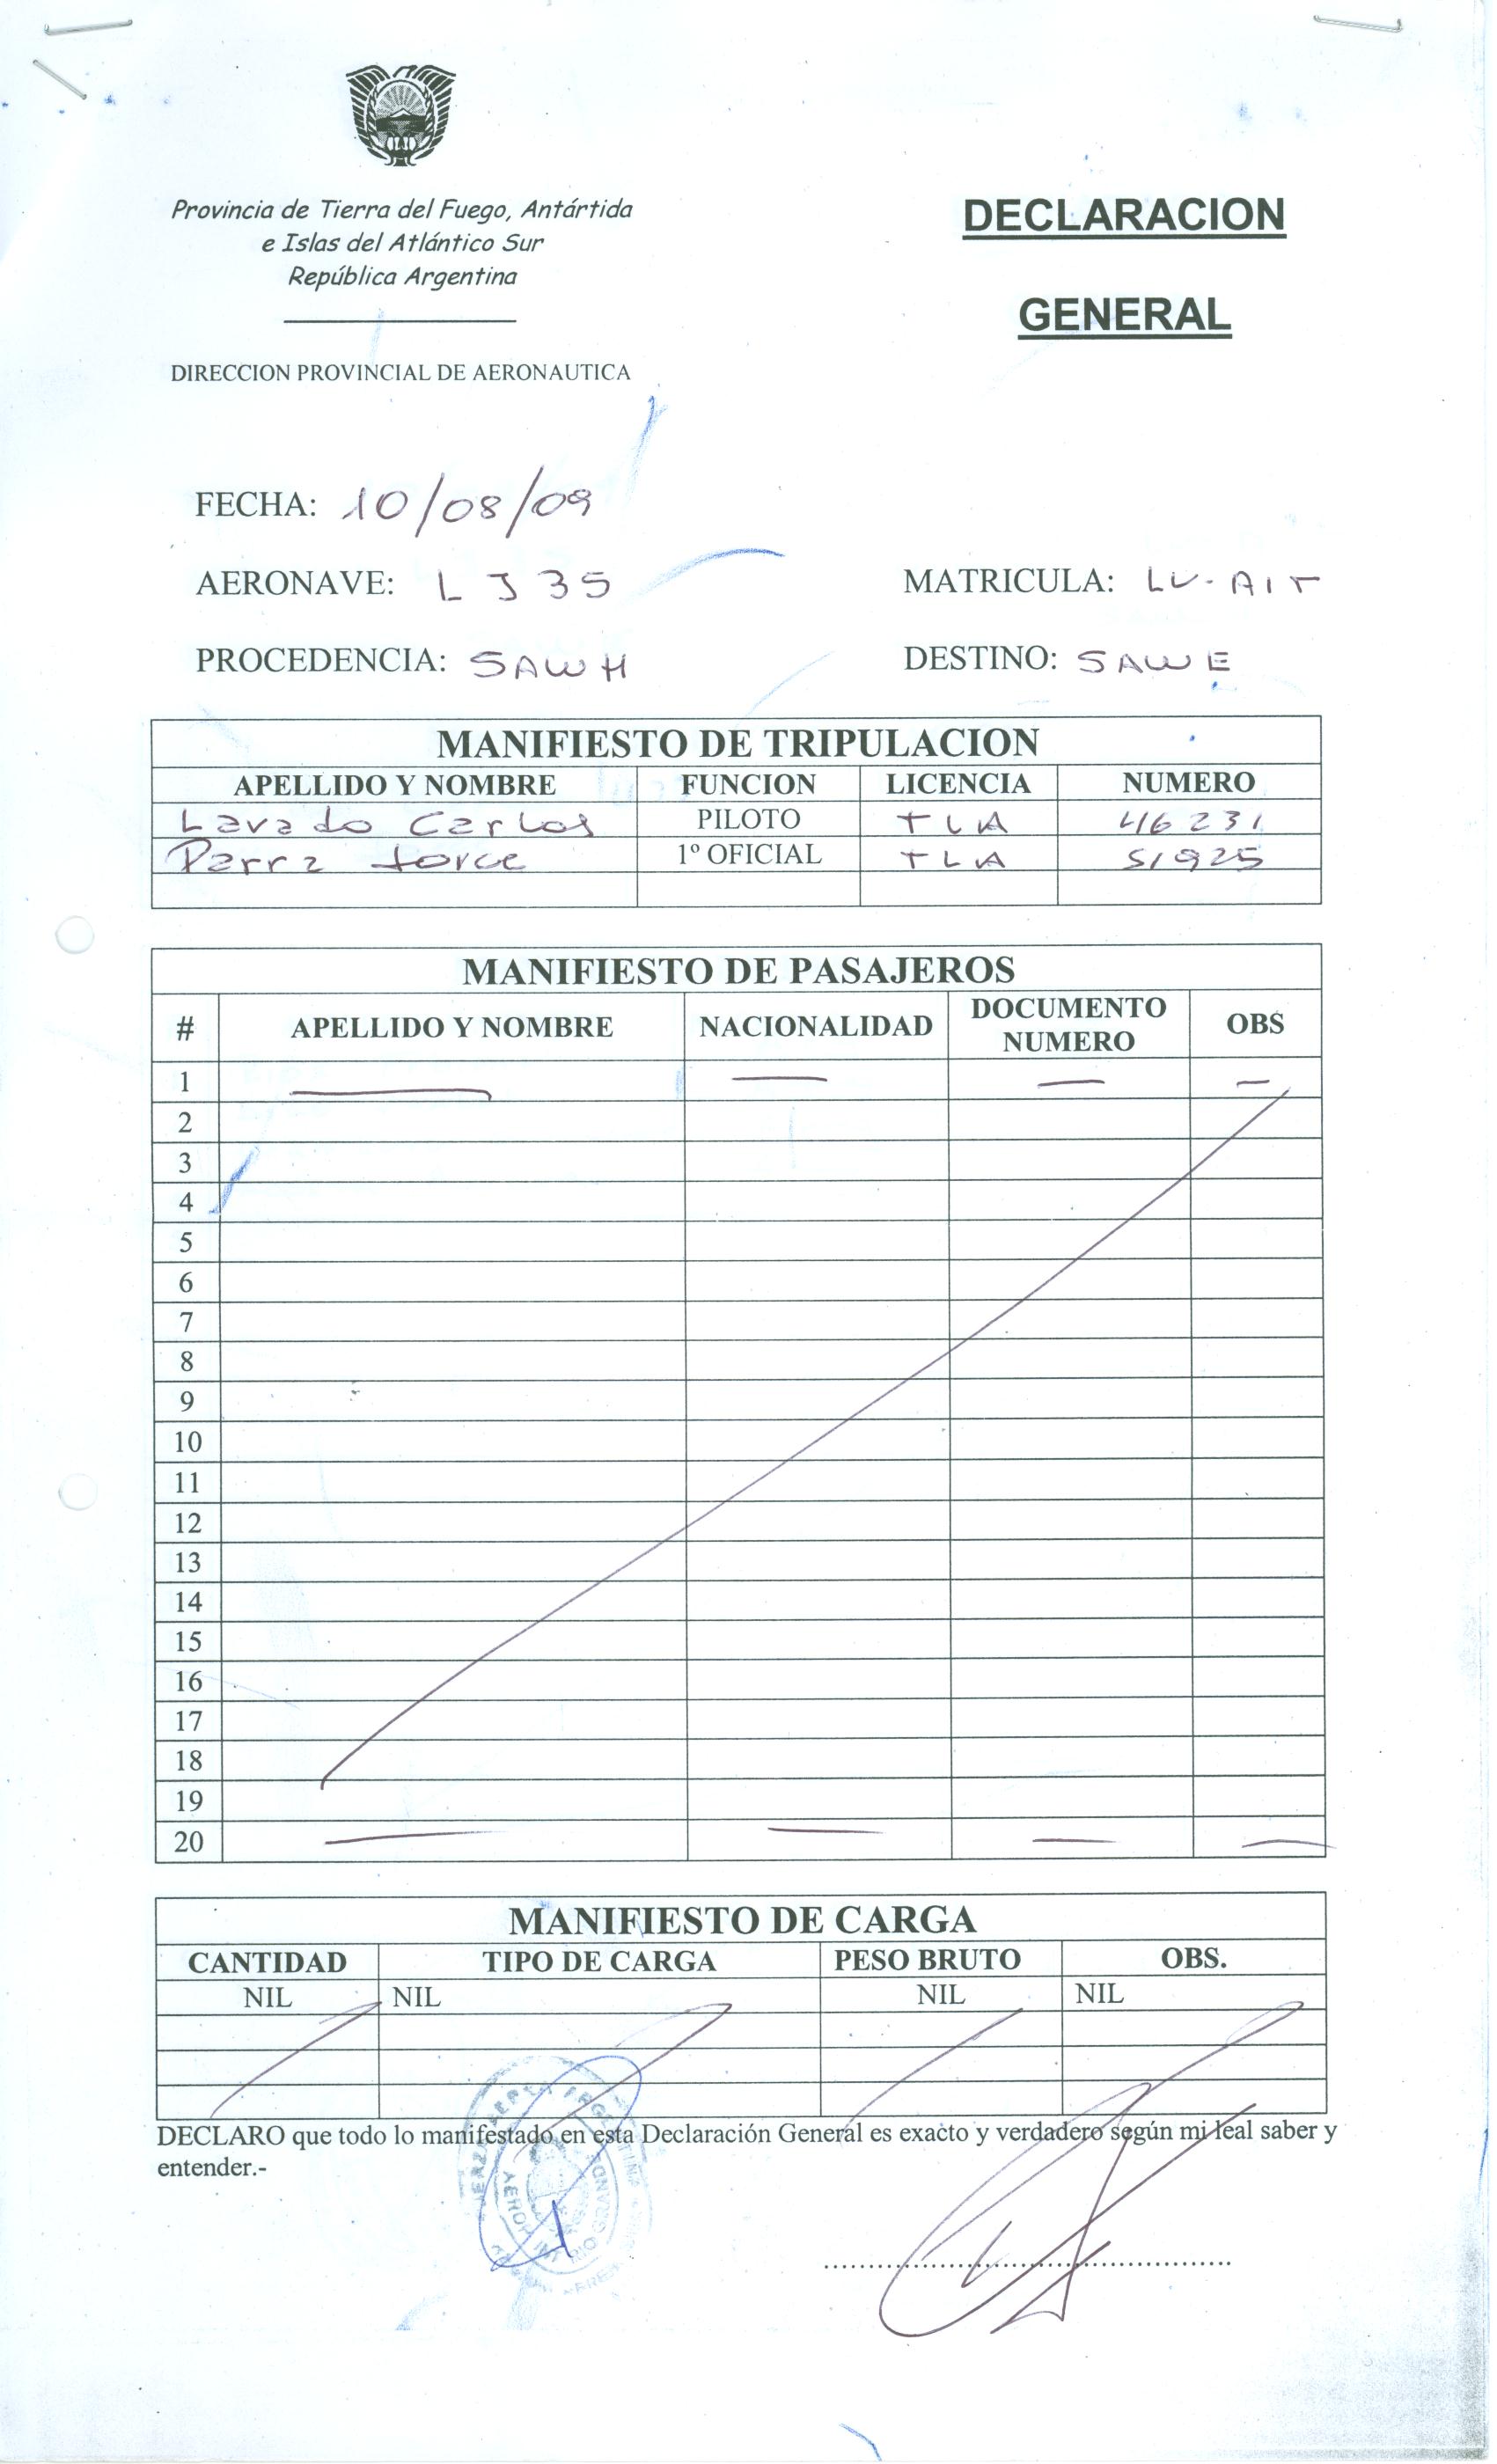 Provincia de Tierra del Fuego, Antártida
e Islas del Atlántico Sur
República Argentina
DIRECCION PROVINCIAL DE AERONAUTICA
DECLARACION
GENERAL
FECHA: 10/08/09
AERONAVE: LJ35 MATRICULA: LV-AIT
PROCEDENCIA: SAWH DESTINO: SAWE
MANIFIESTO DE TRIPULACION
APELLIDO Y NOMBRE FUNCION LICENCIA NUMERO
Lavado Carlos PILOTO TLA 46231
Parra Jorge 1º OFICIAL TLA 51925
MANIFIESTO DE PASAJEROS
# APELLIDO Y NOMBRE NACIONALIDAD DOCUMENTO NUMERO OBS
1
2
3
4
5
6
7
8
9
10
11
12
13
14
15
16
17
18
19
20
MANIFIESTO DE CARGA
CANTIDAD TIPO DE CARGA PESO BRUTO OBS.
NIL NIL NIL NIL
DECLARO que todo lo manifestado en esta Declaración General es exacto y verdadero según mi leal saber y
entender.-